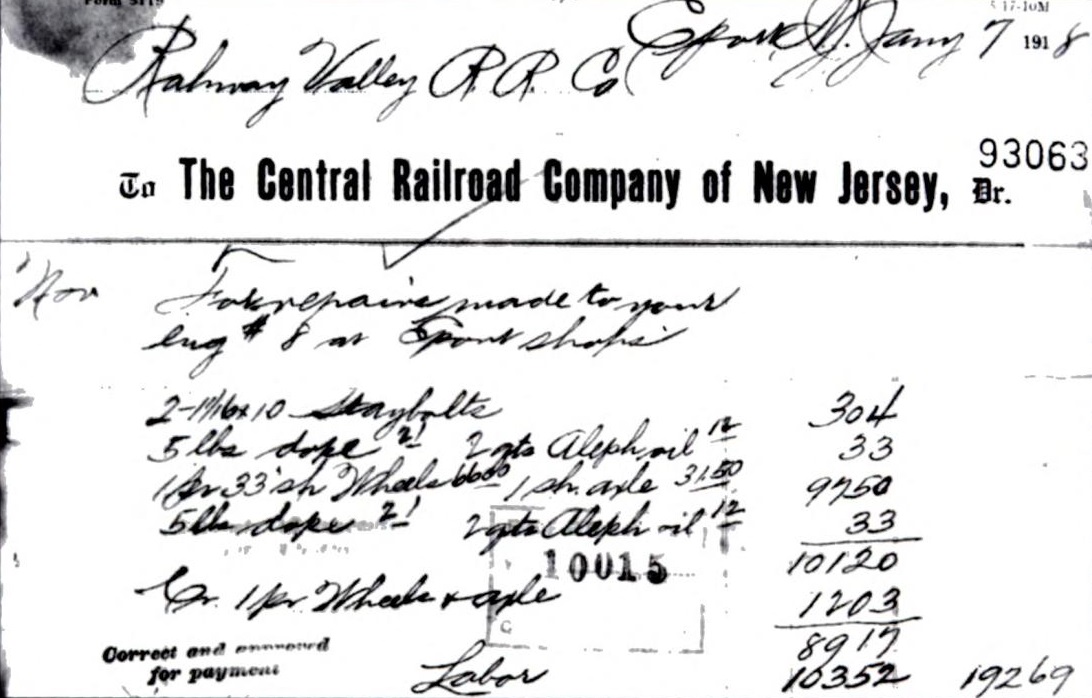 Form 5119
5 17-10M
Eport NJ. Jany 7 1918
Rahway Valley R. R. Co
93063
To The Central Railroad Company of New Jersey, Dr.
Nov For repairs made to your
eng # 8 at Eport shops
2-11/16x10 Staybolts 304
5 lbs dope 21 2 qts Aleph oil 12 33
1 pr 33" sh Wheels 6600 1 sh. axle 31.50 9750
5 lbs dope 21 2 qts Aleph oil 12 33
10015
10120
Cr. 1 pr Wheels & axle 1203
8917
Correct and approved
for payment
Labor 10352 19269